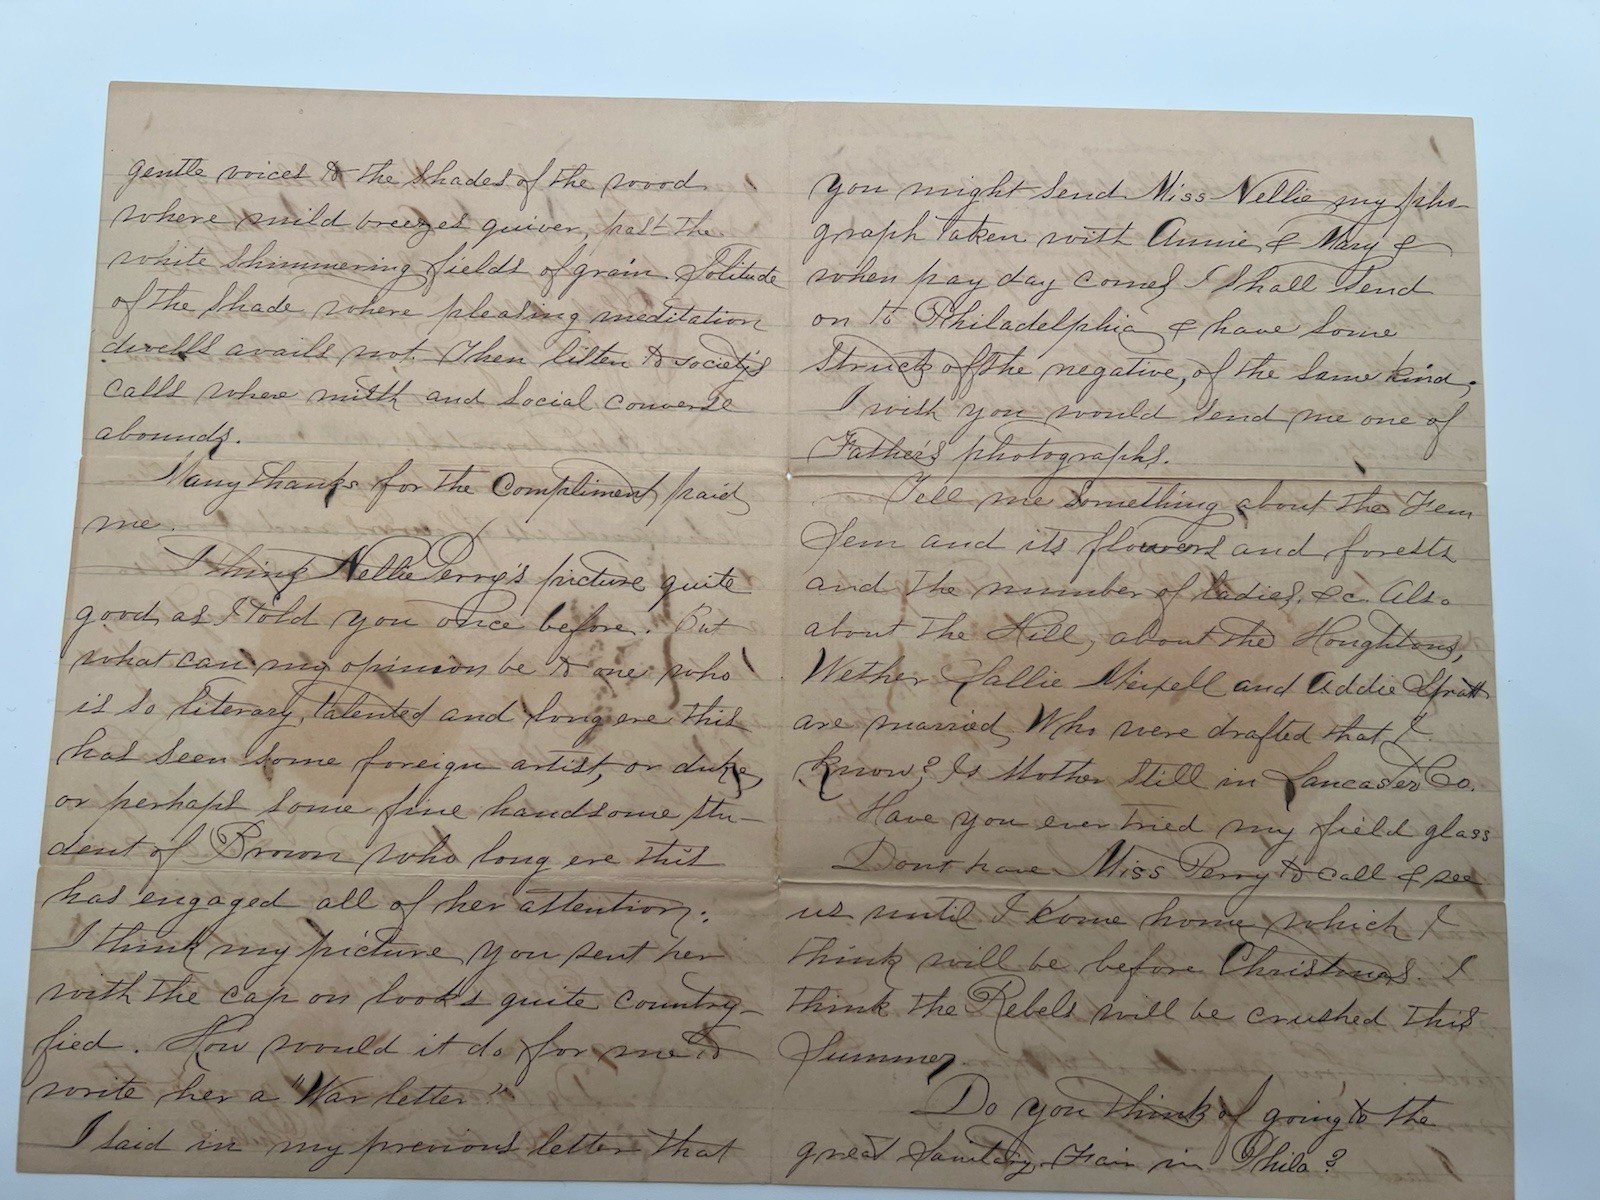 gentle voices to the shades of the wood
where mild breezes quiver, past the
white shimmering fields of grain. Solitude
of the shade where pleasing meditation
dwells avails not. Then listen to society's
calls where mirth and social converse
abounds.
Many thanks for the Compliment paid
me.
I think Nellie Perry's picture quite
good, as I told you once before. But
what can my opinion be to one who
is so literary, talented and long ere this
has seen some foreign artist, or duke,
or perhaps some fine handsome stu-
dent of Brown who long ere this
has engaged all of her attention.
I think my picture you sent her
with the cap on looks quite country-
fied. How would it do for me to
write her a "War letter"
I said in my previous letter that
you might send Miss Nellie my pho-
graph taken with Annie & Mary &
when pay day comes I shall send
on to Philadelphia & have some
struck off the negative, of the same kind,
I wish you would send me one of
Father's photographs.
Tell me something about the Fem
Sem and its flowers and forests
and the number of ladies, &c. Also
about the Hill, about the Houghtons,
Wether Sallie Meixell and Addie Spratt
are married, Who were drafted that I
know? Is Mother still in Lancaster Co.
Have you ever tried my field glass
Dont have Miss Perry to call & see
us until I come home which I
think will be before Christmas. I
think the Rebels will be crushed this
Summer.
Do you think of going to the
great Sanitary Fair in Phila?